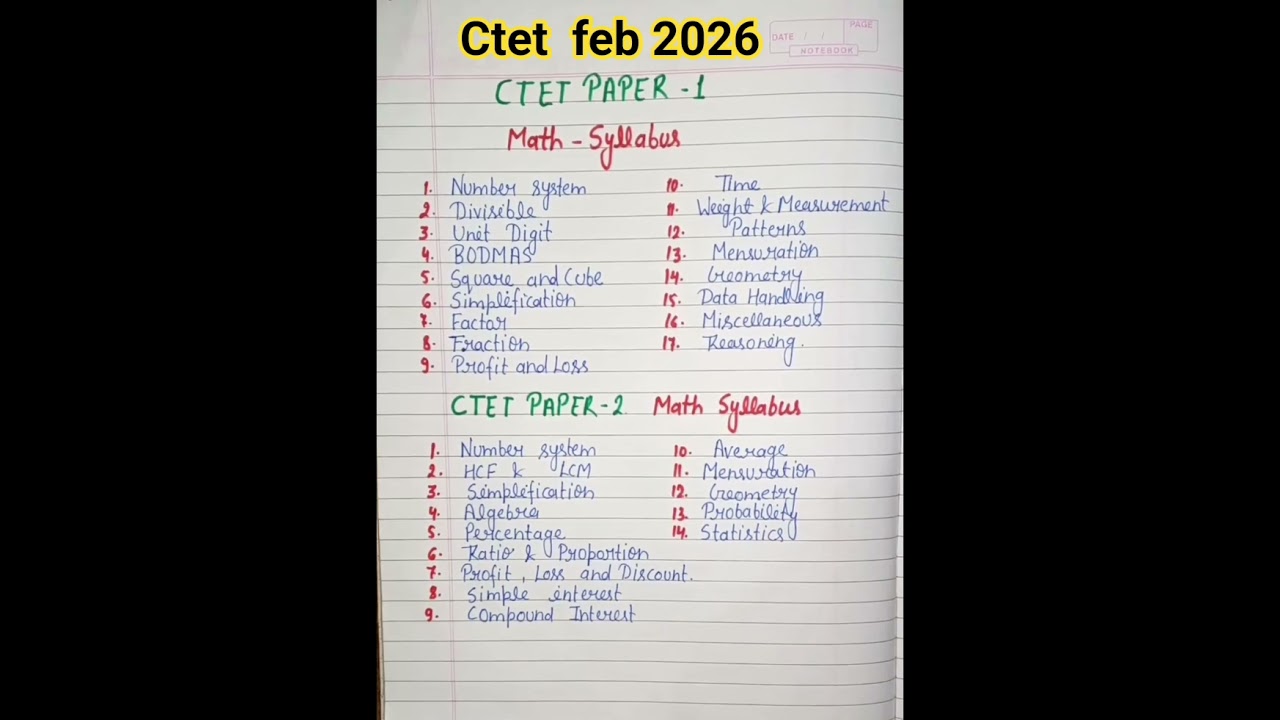 Ctet feb 2026
PAGE
DATE / /
NOTEBOOK
CTET PAPER -1
Math - Syllabus
1. Number system
2. Divisible
3. Unit Digit
4. BODMAS
5. Square and Cube
6. Simplification
7. Factor
8. Fraction
9. Profit and Loss
10. Time
11. Weight & Measurement
12. Patterns
13. Mensuration
14. Geometry
15. Data Handling
16. Miscellaneous
17. Reasoning.
CTET PAPER-2 Math Syllabus
1. Number system
2. HCF & LCM
3. Simplification
4. Algebra
5. Percentage
6. Ratio & Proportion
7. Profit, Loss and Discount.
8. Simple interest
9. Compound Interest
10. Average
11. Mensuration
12. Geometry
13. Probability
14. Statistics